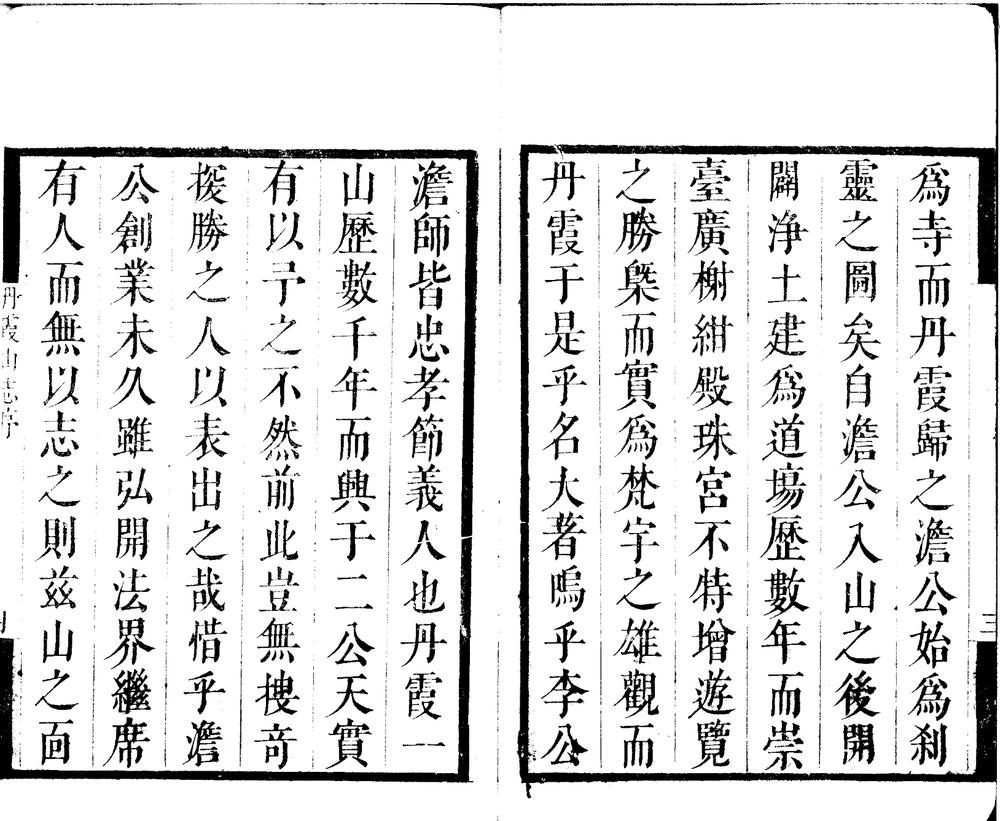 爲寺而丹霞歸之澹公始爲刹
靈之圖矣自澹公入山之後開
闢浄土建爲道場歷數年而崇
臺廣榭紺殿珠宮不特增遊覽
之勝槩而實爲梵宇之雄觀而
丹霞于是乎名大著嗚乎李公
三
澹師皆忠孝節義人也丹霞一
山歷數千年而興于二公天實
有以予之不然前此豈無搜奇
援勝之人以表出之哉惜乎澹
公創業未久雖弘開法界繼席
有人而無以志之則兹山之面
丹霞山志序